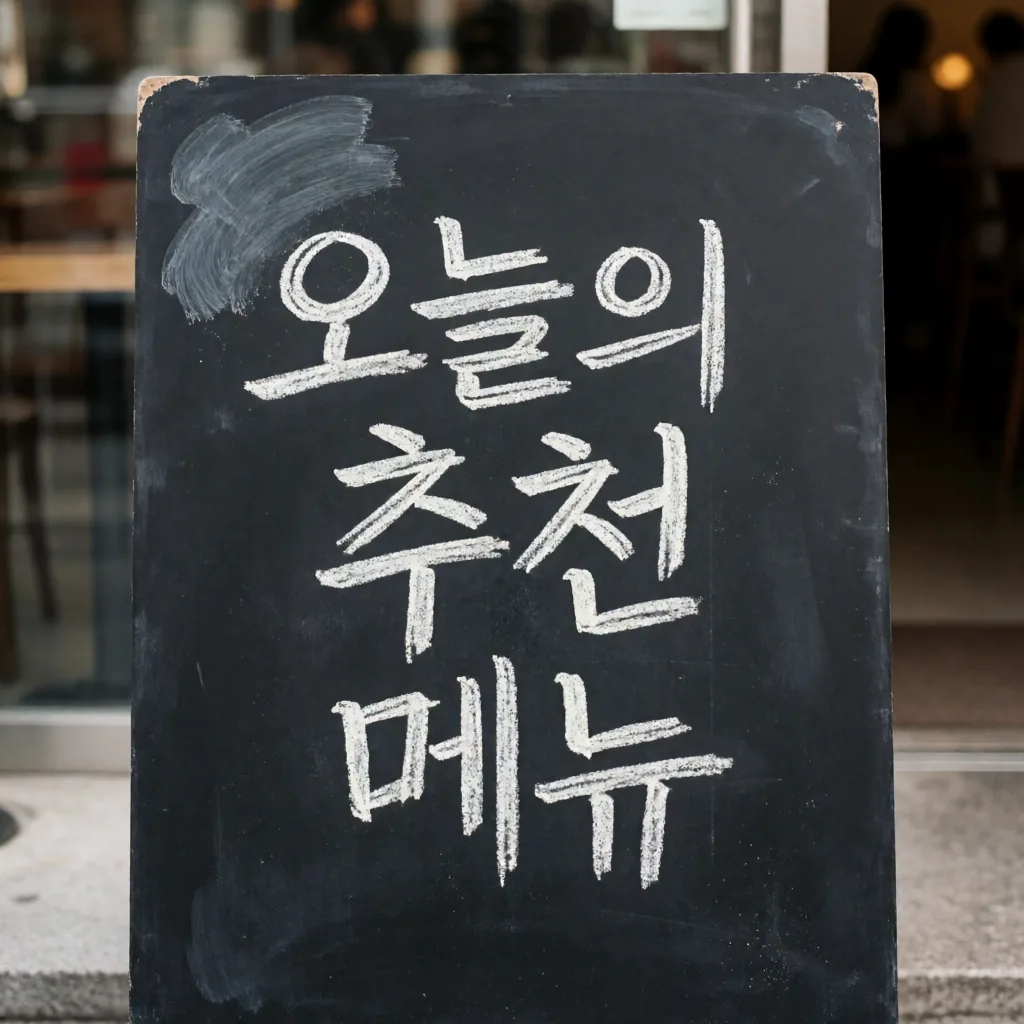 오늘의
추천
메뉴